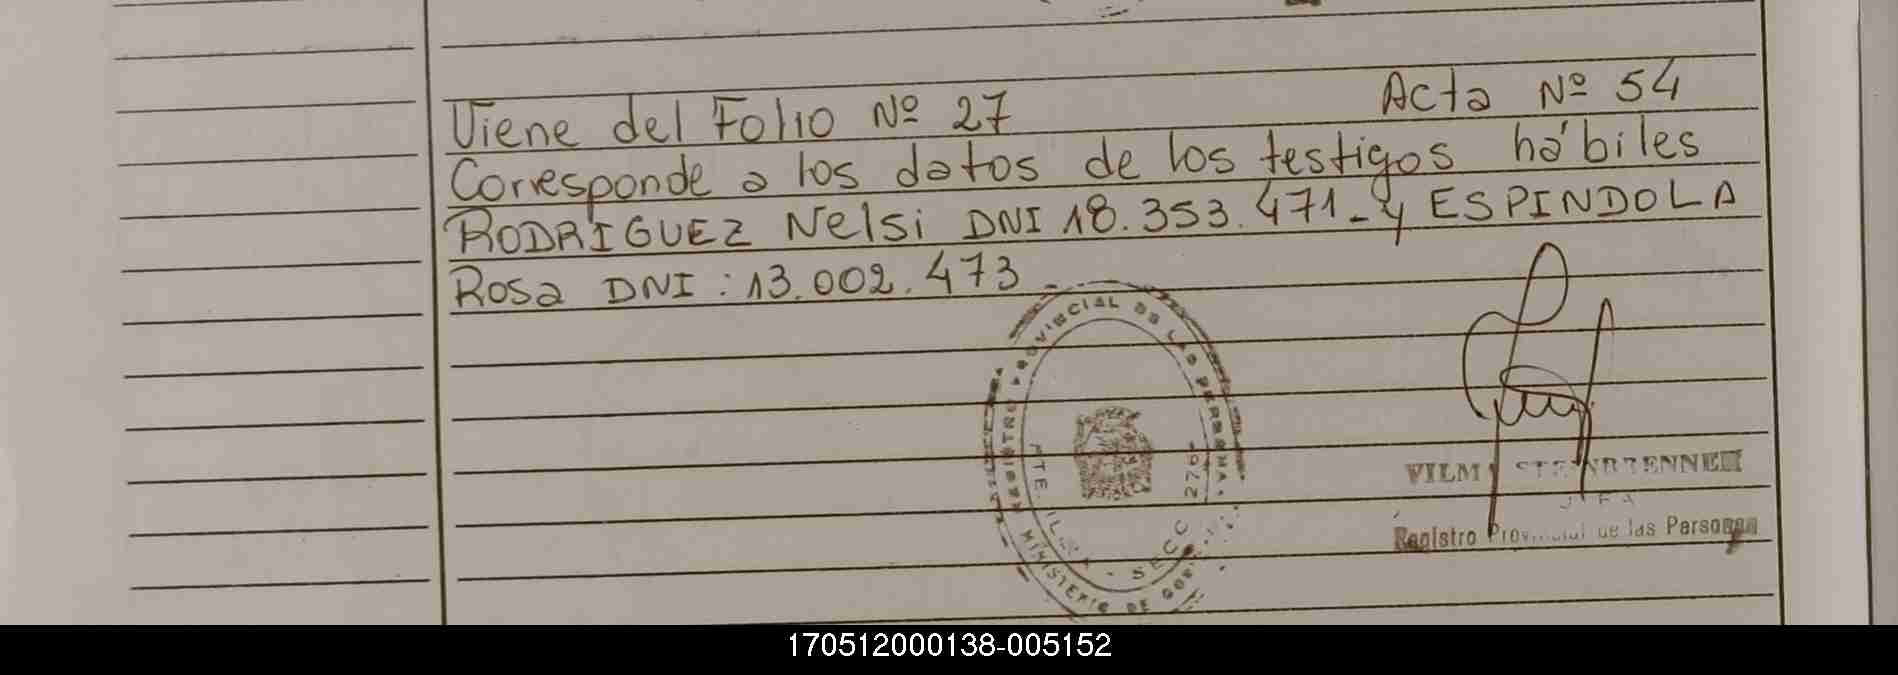 Viene del Folio Nº 27 Acta Nº 54
Corresponde a los datos de los testigos hábiles
RODRIGUEZ Nelsi DNI 18.353.471 - y ESPINDOLA
Rosa DNI: 13.002.473
REGISTRO PROVINCIAL DE LAS PERSONAS
MINISTERIO DE
PTE.
SECC
VILMA
JEFA
Registro Provincial de las Personas
170512000138-005152